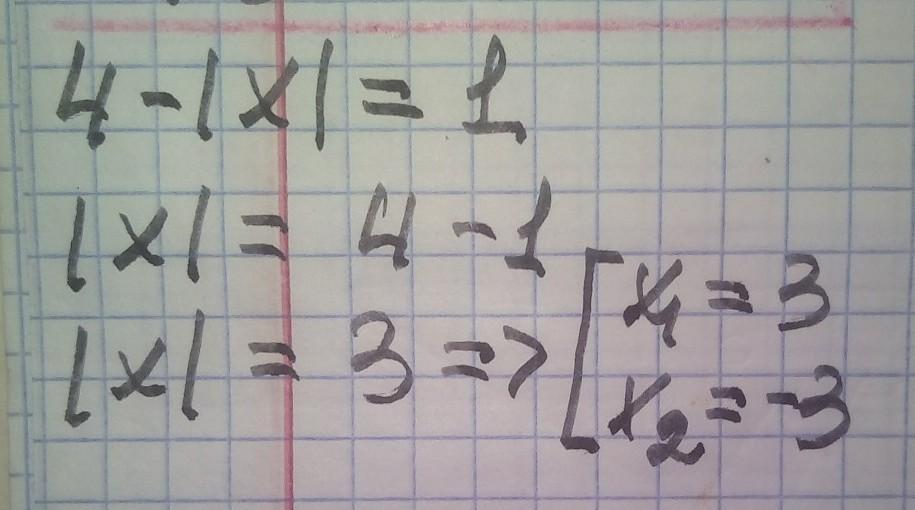 4-|x|= 1
|x|= 4-1
|x| = 3 => [ x₁ = 3
x₂ = -3